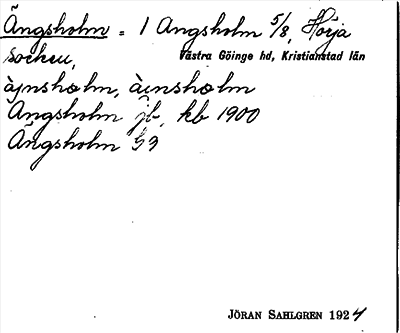 Ängsholm = 1 Angsholm 5/8, Hörja
socken, Västra Göinge hd, Kristianstad län
àjnsholm, àensholm
Angsholm jb, kb 1900
Ängsholm
JÖRAN SAHLGREN 1924